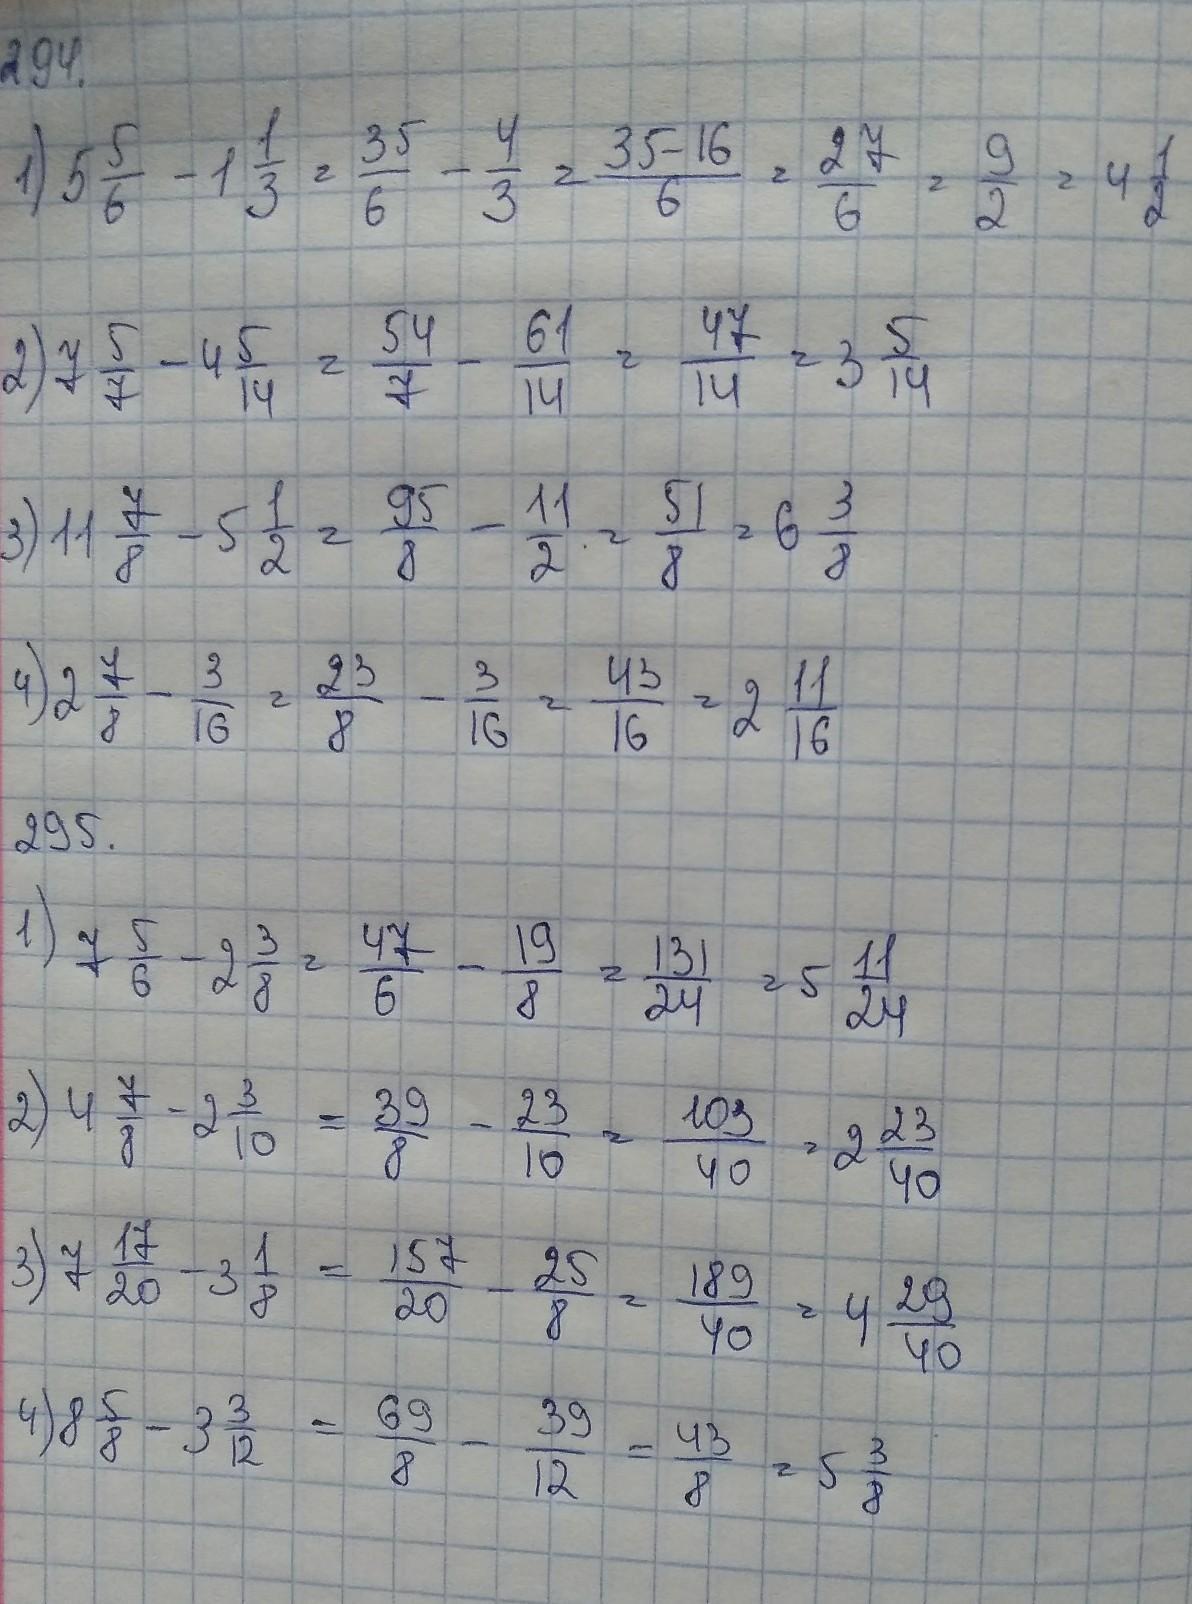 294.
1) 5 5/6 - 1 1/3 = 35/6 - 4/3 = 35-16/6 = 27/6 = 9/2 = 4 1/2
2) 7 5/7 - 4 5/14 = 54/7 - 61/14 = 47/14 = 3 5/14
3) 11 7/8 - 5 1/2 = 95/8 - 11/2 = 51/8 = 6 3/8
4) 2 7/8 - 3/16 = 23/8 - 3/16 = 43/16 = 2 11/16
295.
1) 7 5/6 - 2 3/8 = 47/6 - 19/8 = 131/24 = 5 11/24
2) 4 7/8 - 2 3/10 = 39/8 - 23/10 = 103/40 = 2 23/40
3) 7 17/20 - 3 1/8 = 157/20 - 25/8 = 189/40 = 4 29/40
4) 8 5/8 - 3 3/12 = 69/8 - 39/12 = 43/8 = 5 3/8